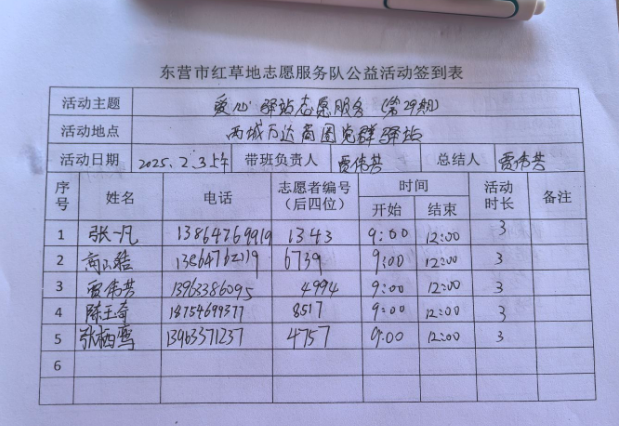 东营市红草地志愿服务队公益活动签到表
活动主题 爱心驿站志愿服务（第29期）
活动地点 西城万达商圈党群驿站
活动日期 2025.2.3上午 带班负责人 贾伟芳 总结人 贾伟芳
序号 姓名 电话 志愿者编号（后四位） 时间 活动时长 备注
开始 结束
1 张一凡 13864769919 1343 9:00 12:00 3
2 6739 9:00 12:00 3
3 贾伟芳 13963386095 4994 9:00 12:00 3
4 陈玉奇 18754699377 8517 9:00 12:00 3
5 13963371237 4757 9:00 12:00 3
6